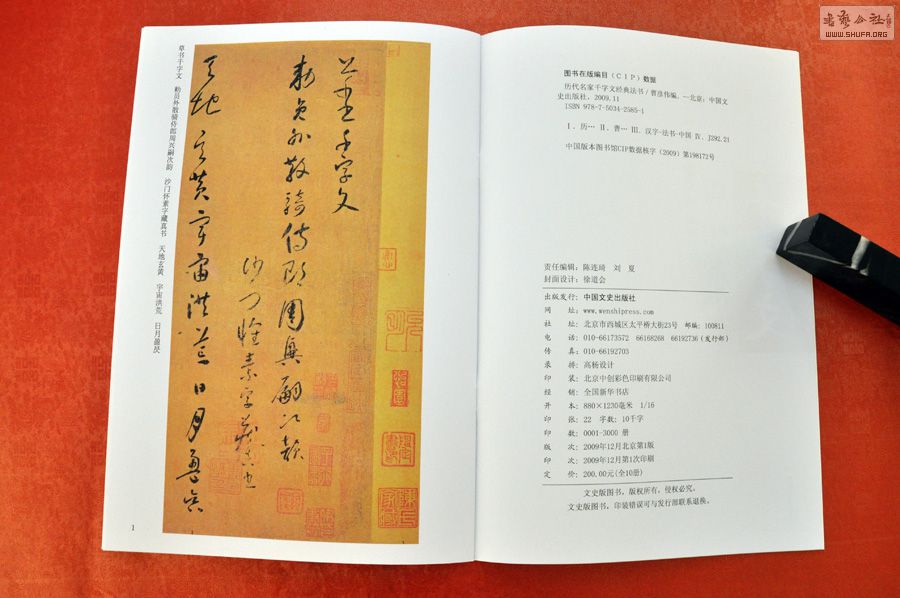 書藝公社
WWW.SHUFA.ORG
草书千字文 勅员外散骑侍郎周兴嗣次韵 沙门怀素字藏真书 天地玄黄 宇宙洪荒 日月盈昃
草书千字文
勅员外散骑侍郎周兴嗣次韵
沙门怀素字藏真书
天地玄黄宇宙洪荒日月盈昃
1
图书在版编目(CIP)数据
历代名家千字文经典法书/曹彦伟编. —北京:中国文
史出版社, 2009.11
ISBN 978-7-5034-2585-1
Ⅰ. 历… Ⅱ. 曹… Ⅲ. 汉字-法书-中国 Ⅳ. J292.21
中国版本图书馆CIP数据核字(2009)第198172号
责任编辑: 陈连琦 刘 夏
封面设计: 徐道会
出版发行: 中国文史出版社
网 址: www.wenshipress.com
社 址: 北京市西城区太平桥大街23号 邮编: 100811
电 话: 010-66173572 66168268 66192736(发行部)
传 真: 010-66192703
录 排: 高杨设计
印 装: 北京中创彩色印刷有限公司
经 销: 全国新华书店
开 本: 880×1230毫米 1/16
印 张: 22 字数: 10千字
印 数: 0001-3000 册
版 次: 2009年12月北京第1版
印 次: 2009年12月第1次印刷
定 价: 200.00元(全10册)
文史版图书, 版权所有, 侵权必究。
文史版图书, 印装错误可与发行部联系退换。